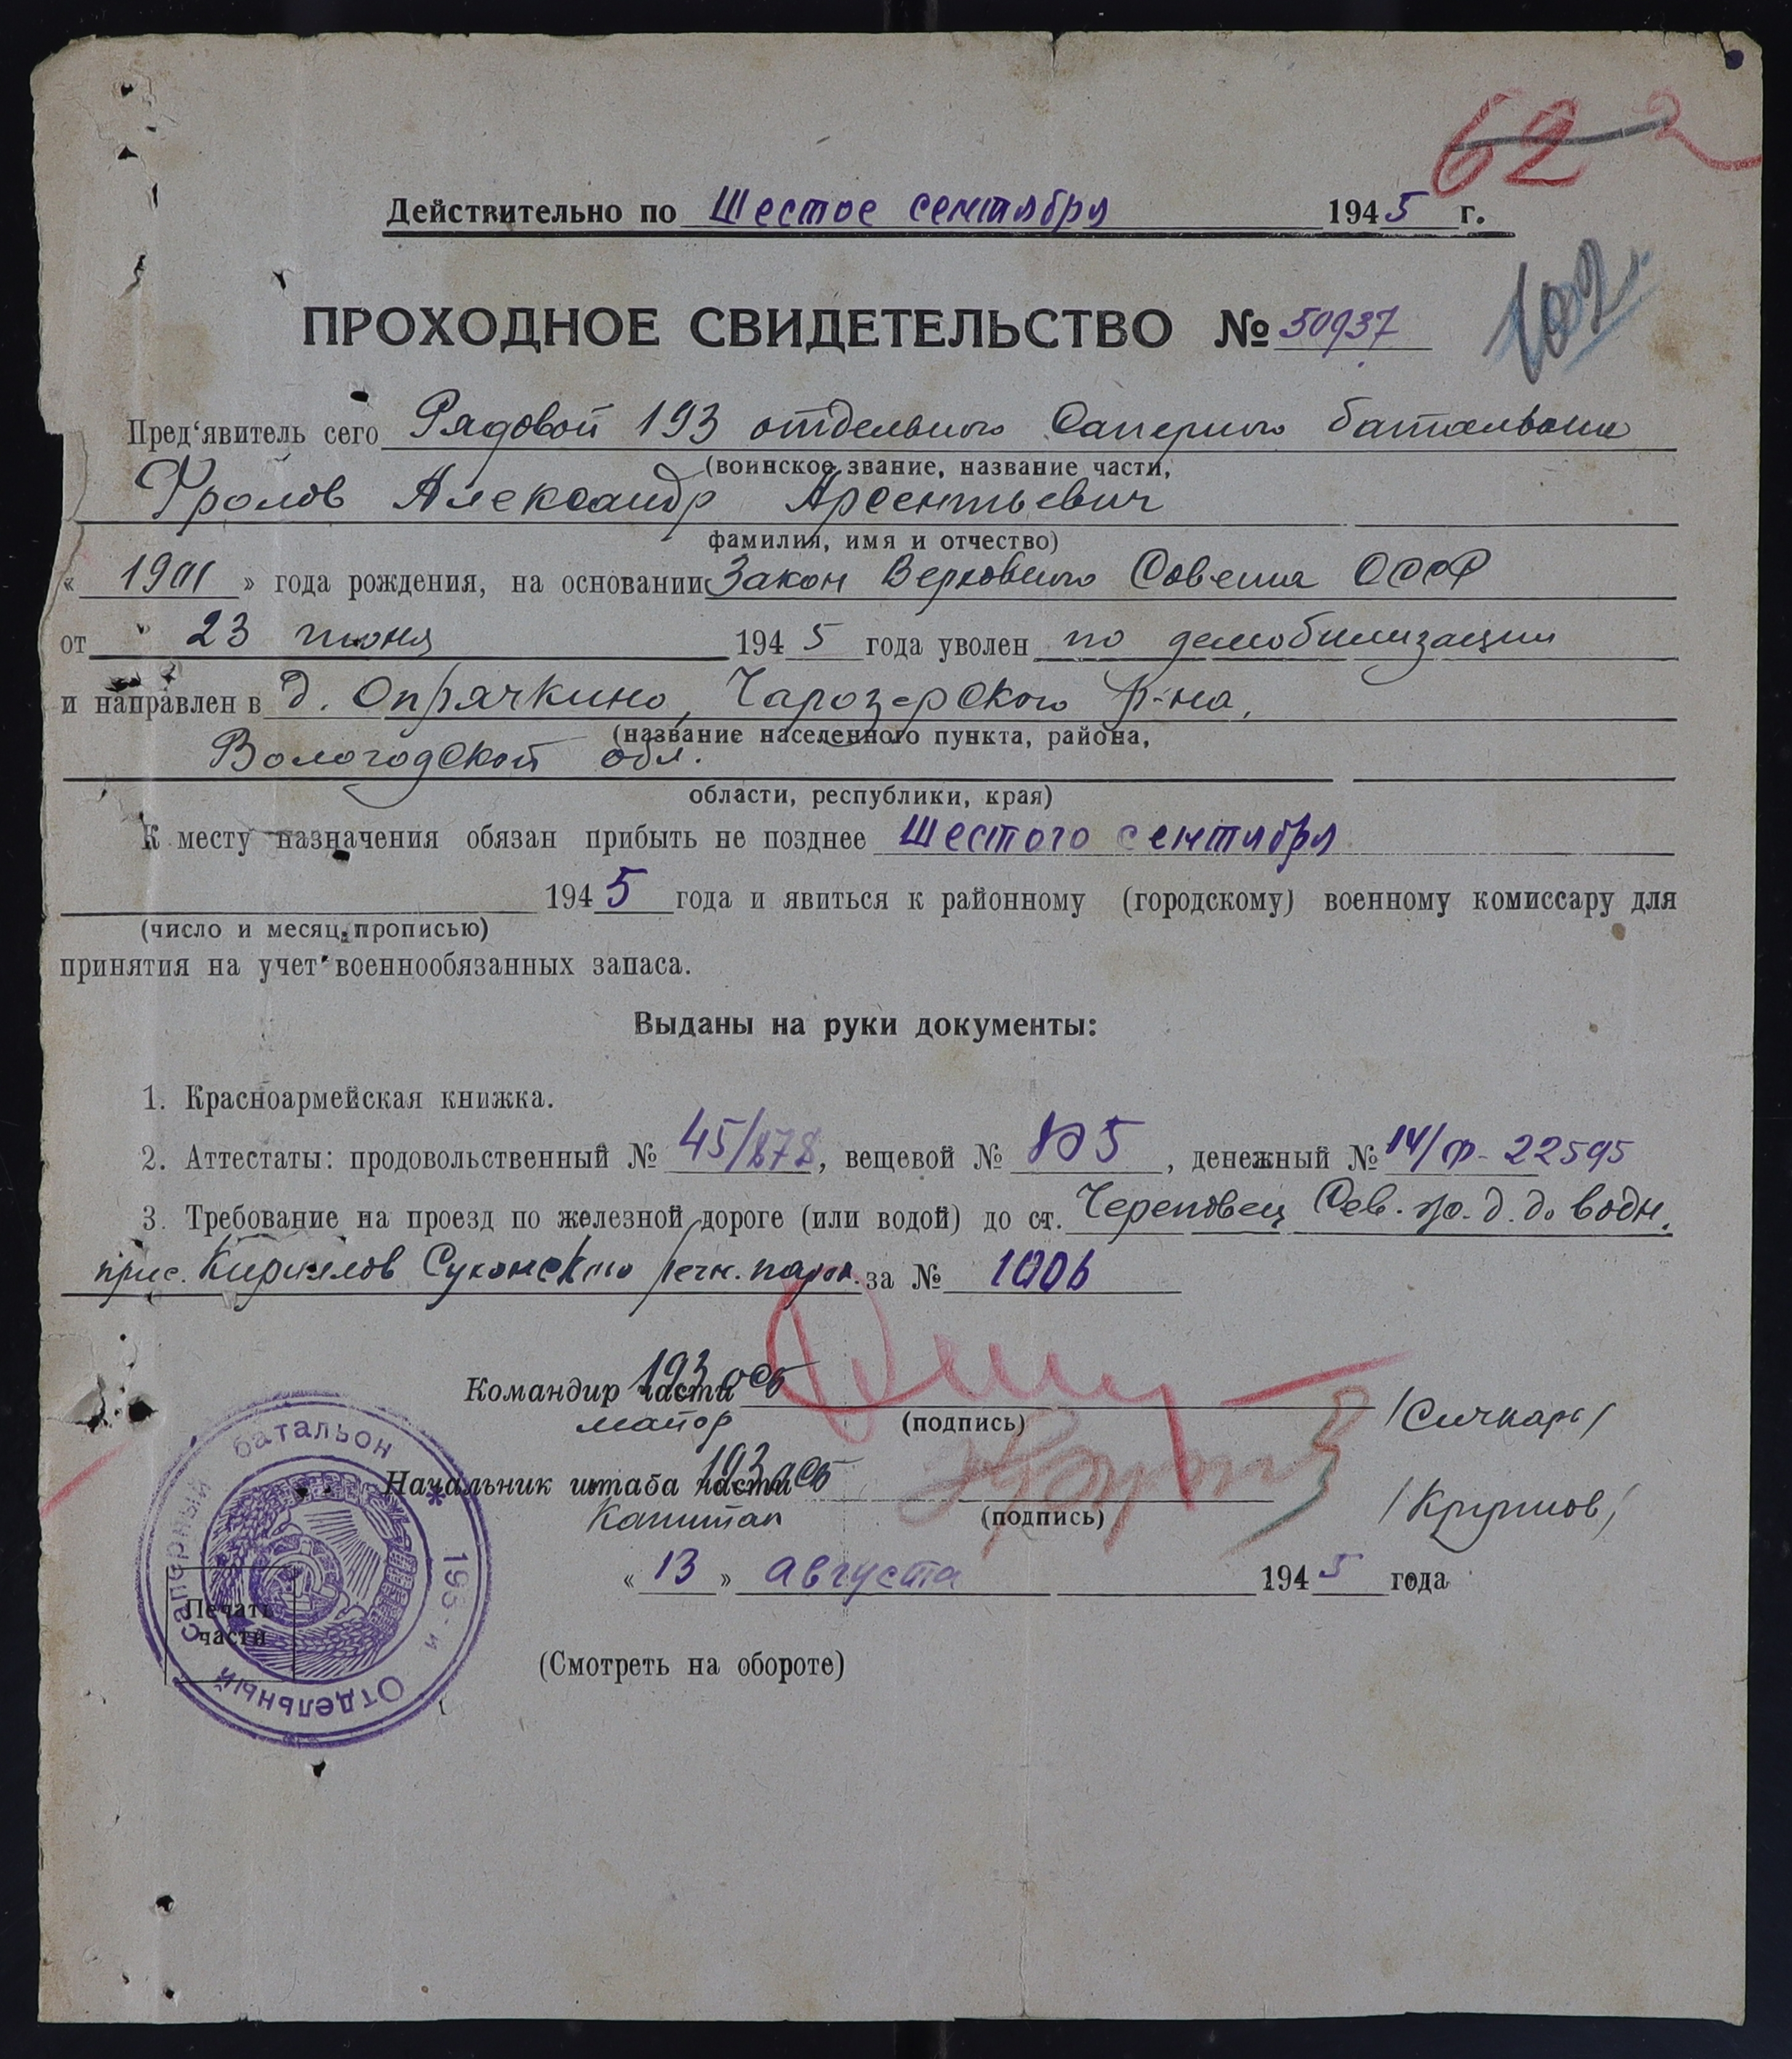 62
Действительно по Шестое сентября 1945 г.
ПРОХОДНОЕ СВИДЕТЕЛЬСТВО № 50937
Пред‘явитель сего Рядовой 193 отдельного Саперного батальона
(воинское звание, название части,
Фролов Александр Арсентьевич
фамилия, имя и отчество)
« 1901 » года рождения, на основании Закон Верховного Совета СССР
от " 23 июня 1945 года уволен по демобилизации
и направлен в д. Опрячкино, Чарозерского р-на,
(название населенного пункта, района,
Вологодской обл.
области, республики, края)
К месту назначения обязан прибыть не позднее Шестого сентября
1945 года и явиться к районному (городскому) военному комиссару для
(число и месяц прописью)
принятия на учет военнообязанных запаса.
Выданы на руки документы:
1. Красноармейская книжка.
2. Аттестаты: продовольственный № 45/878, вещевой № 805, денежный № 14/Ф-22595
3. Требование на проезд по железной дороге (или водой) до ст. Череповец Сев. ж. д. до водн.
прис. Кириллов Сухонского речн. парох. за № 1006
Командир части 193 осб
майор (подпись) /Сичкарь/
Начальник штаба части 193 осб
Капитан (подпись) /Крупнов/
« 13 » августа 1945 года
Печать
части
193-й Отдельный Саперный батальон
(Смотреть на обороте)